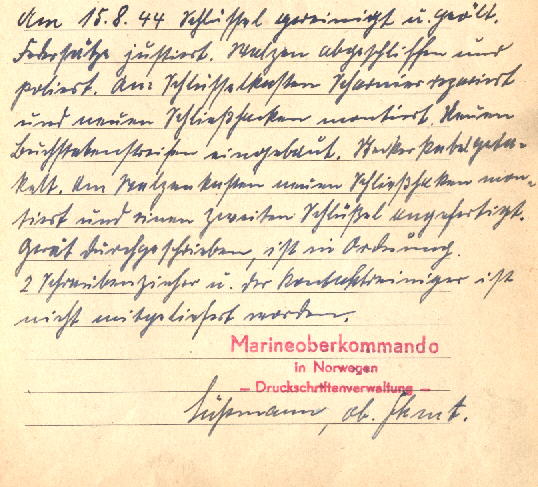 Am 15.8.44 Schlüssel gereinigt u. geölt.
Federsätze justiert. Walzen abgeschliffen und
poliert. Am Schlüsselkasten Scharnier repariert
und neuen Schließhaken montiert. Neuen
Buchstabenstreifen eingebaut. Steckerkabel geta-
kelt. Am Walzenkasten neuen Schließhaken mon-
tiert und einen zweiten Schlüßel angefertigt.
Gerät durchgeschrieben, ist in Ordnung.
2 Schraubenzieher u. der Kontaktreiniger ist
nicht mitgeliefert worden.
Marineoberkommando
in Norwegen
– Druckschriftenverwaltung –
ob.